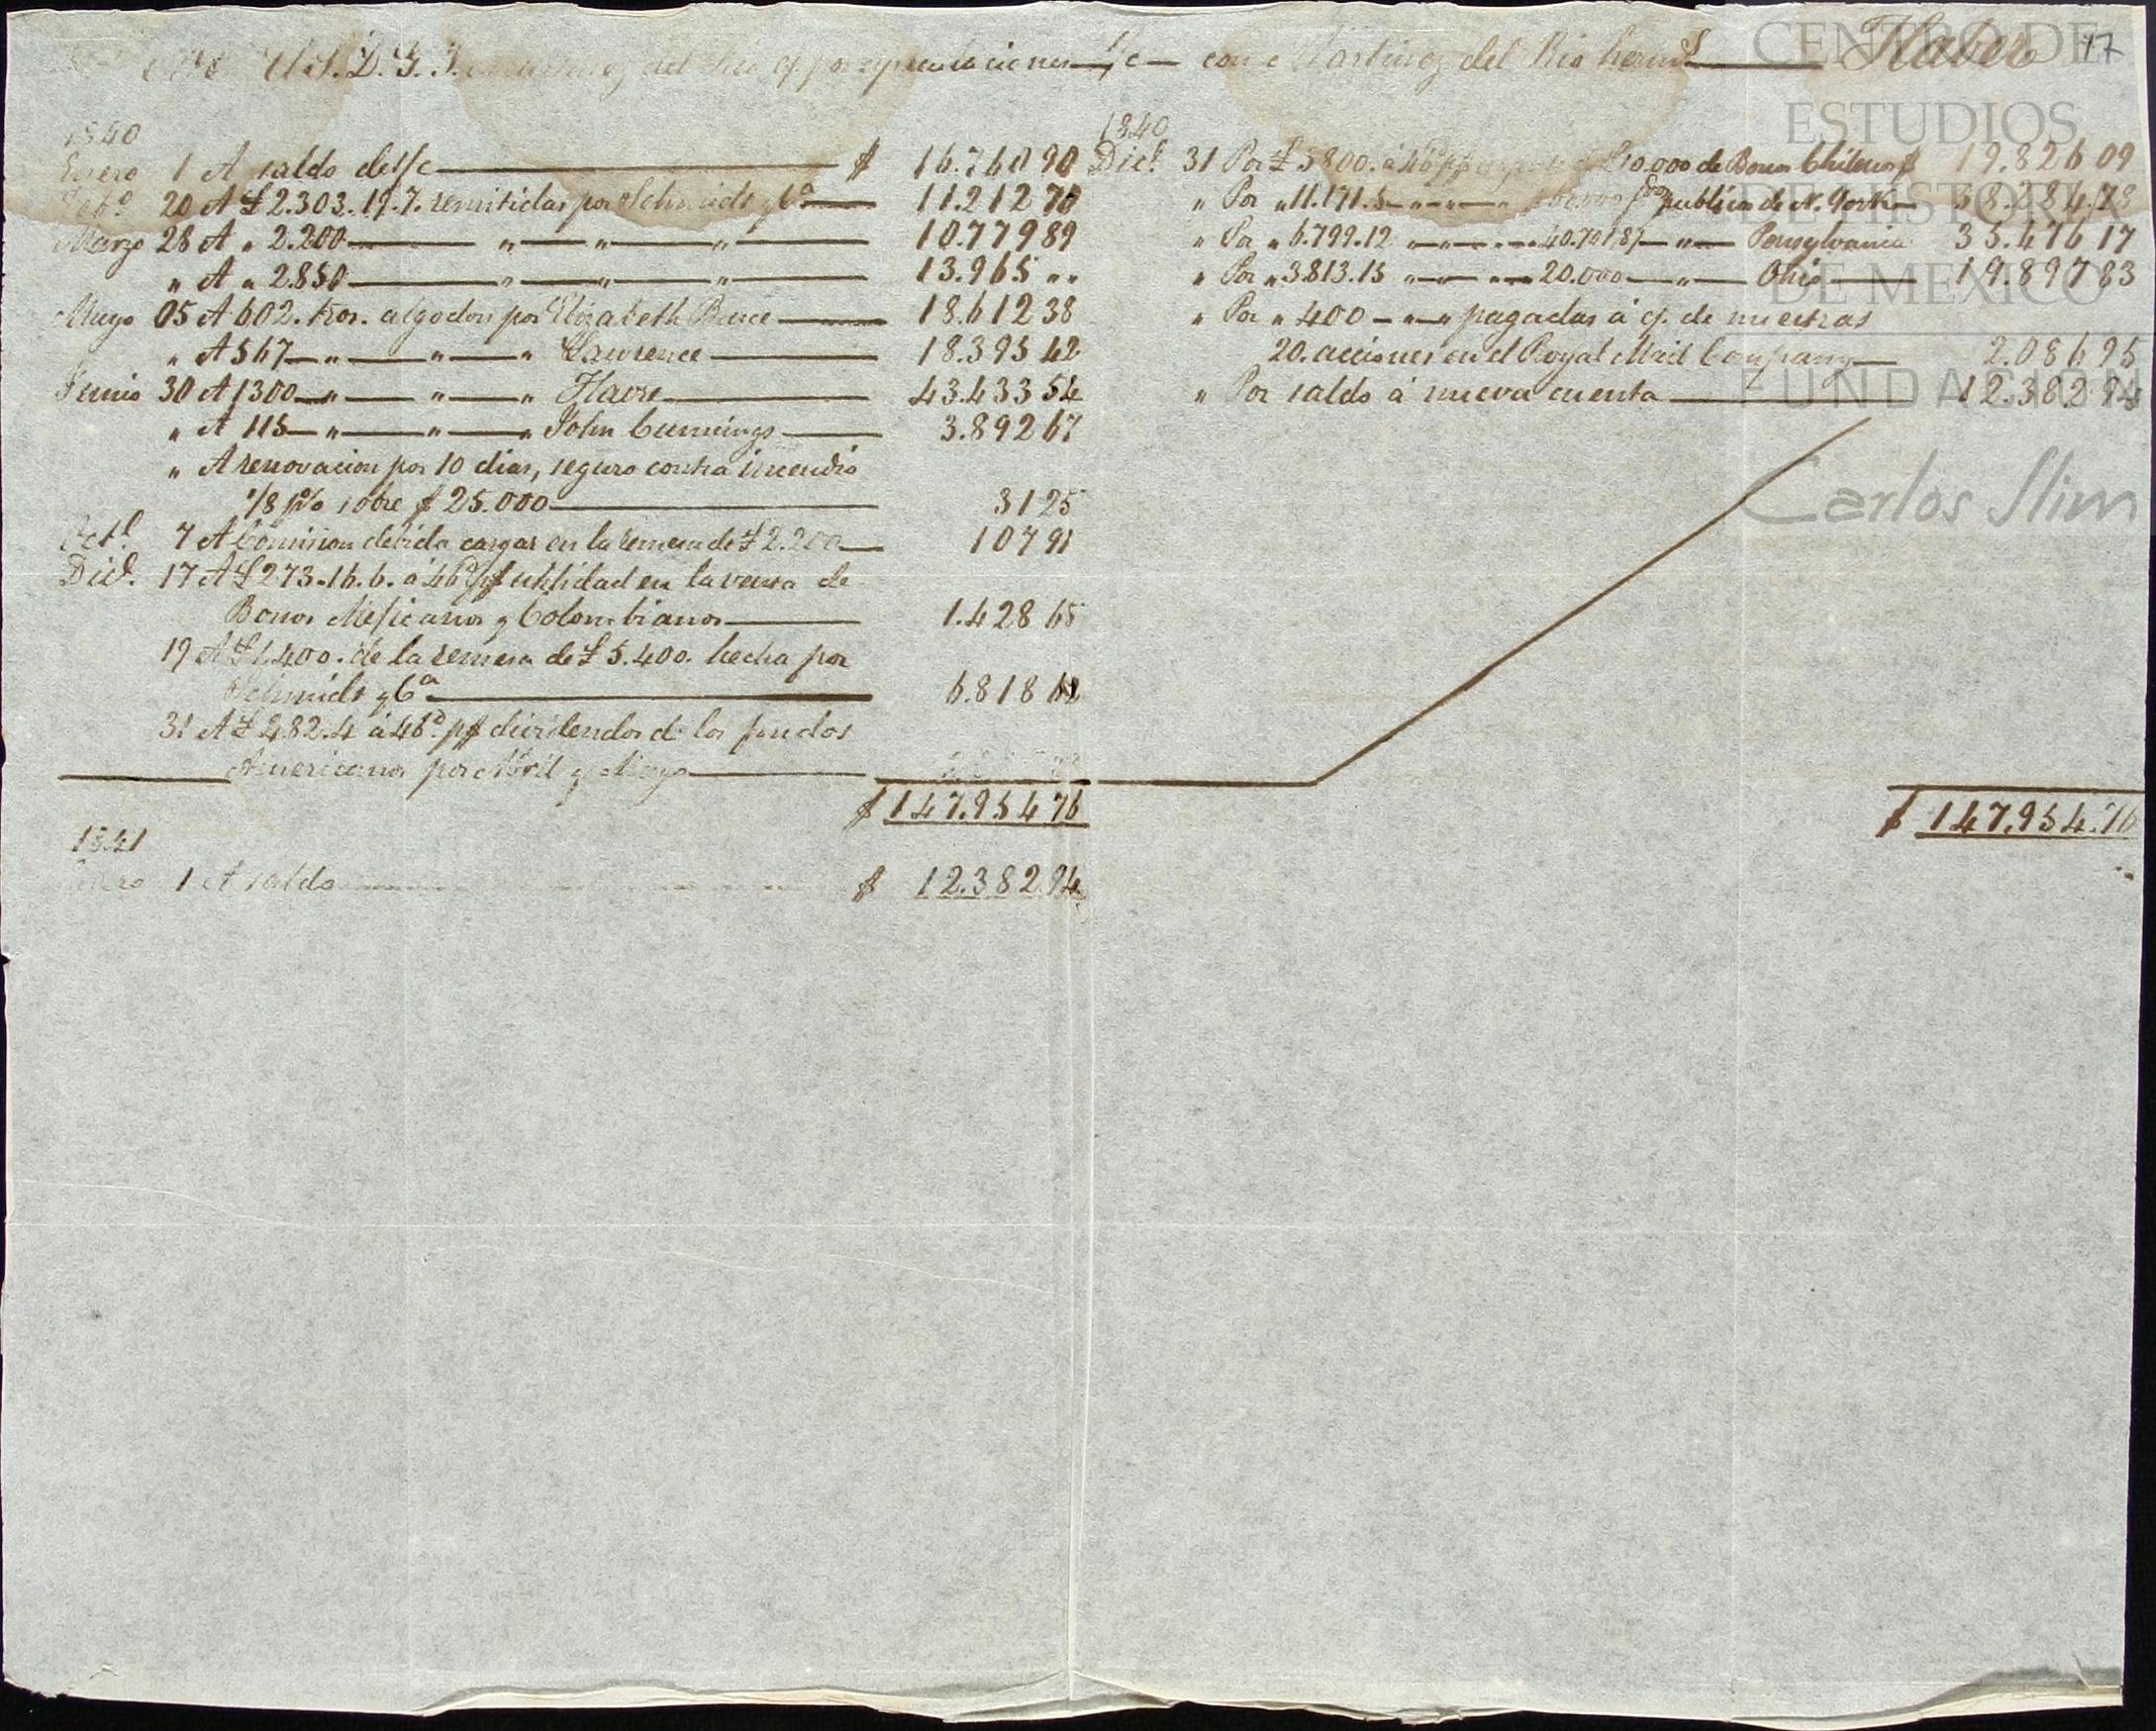 U.S. D. G. J. Martinez del Rio c/. por especulaciones c/c con Martinez del Rio herm.s Haber 17
1840
Enero 1 A saldo de s/c $ 16.760 90
Feb.o 20 A £ 2.303.19.7. remitidas por Schmidt y C.a 11.212 70
Marzo 28 A " 2.200 " " " 10.779 89
" A " 2.850 " " " 13.965 "
Mayo 05 A 602. tros. algodon por Elizabeth Bruce 18.612 38
" A 567 " " " Lawrence 18.395 42
Junio 30 A 1300 " " " Havre 43.433 54
" A 115 " " " John Cumings 3.892 67
" A renovacion por 10 dias, seguro contra incendio
1/8 p% sobre $ 25.000 31 25
Oct.e 7 A Comision debida cargar en la remesa de £ 2.200 107 91
Dic.e 17 A £ 273.16.6. á 46.d p$ utilidad en la venta de
Bonos Mejicanos y Colombianos 1.428 65
19 A £ 1.400. de la remesa de £ 5.400. hecha por
Schmidt y C.a 6.818 62
31 A £ 482.4 á 46.d p$ dividendos de los fondos
Americanos por Abril y Mayo
$ 147.954 76
1841
Enero 1 A saldo $ 12.382.94
1840
Dic.e 31 Por £ 5800. á 46 p$ £ 10.000 de Bonos Chilenos $ 19.826 09
" Por " 11.171.5 " " " publica de N. York 58.284.78
" Por " 6.799.12 " " " 40.701,87 " Pensylvania 35.476 17
" Por " 3.813.15 " " " 20.000 " Ohio 19.897 83
" Por " 400 " " pagadas á c/. de nuestras
20. acciones en el Royal Mail Company 2.086 95
" Por saldo á nueva cuenta 12.382 94
$ 147.954.76
CENTRO DE
ESTUDIOS
DE HISTORIA
DE MEXICO
FUNDACIÓN
Carlos Slim